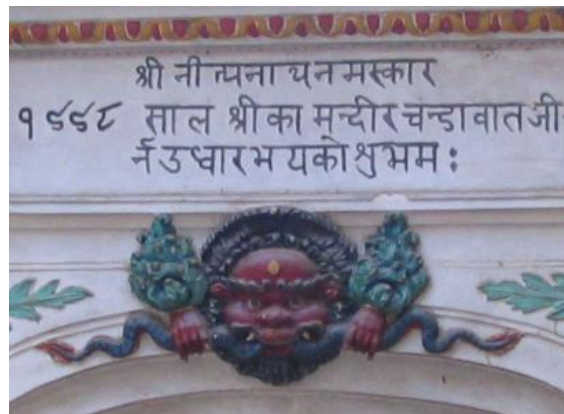 श्री नी त्यना यन मस्कार
१९९८ साल श्री का मन्दीर चन्डावात जी
र्न उध्धार भ यको शुभम :